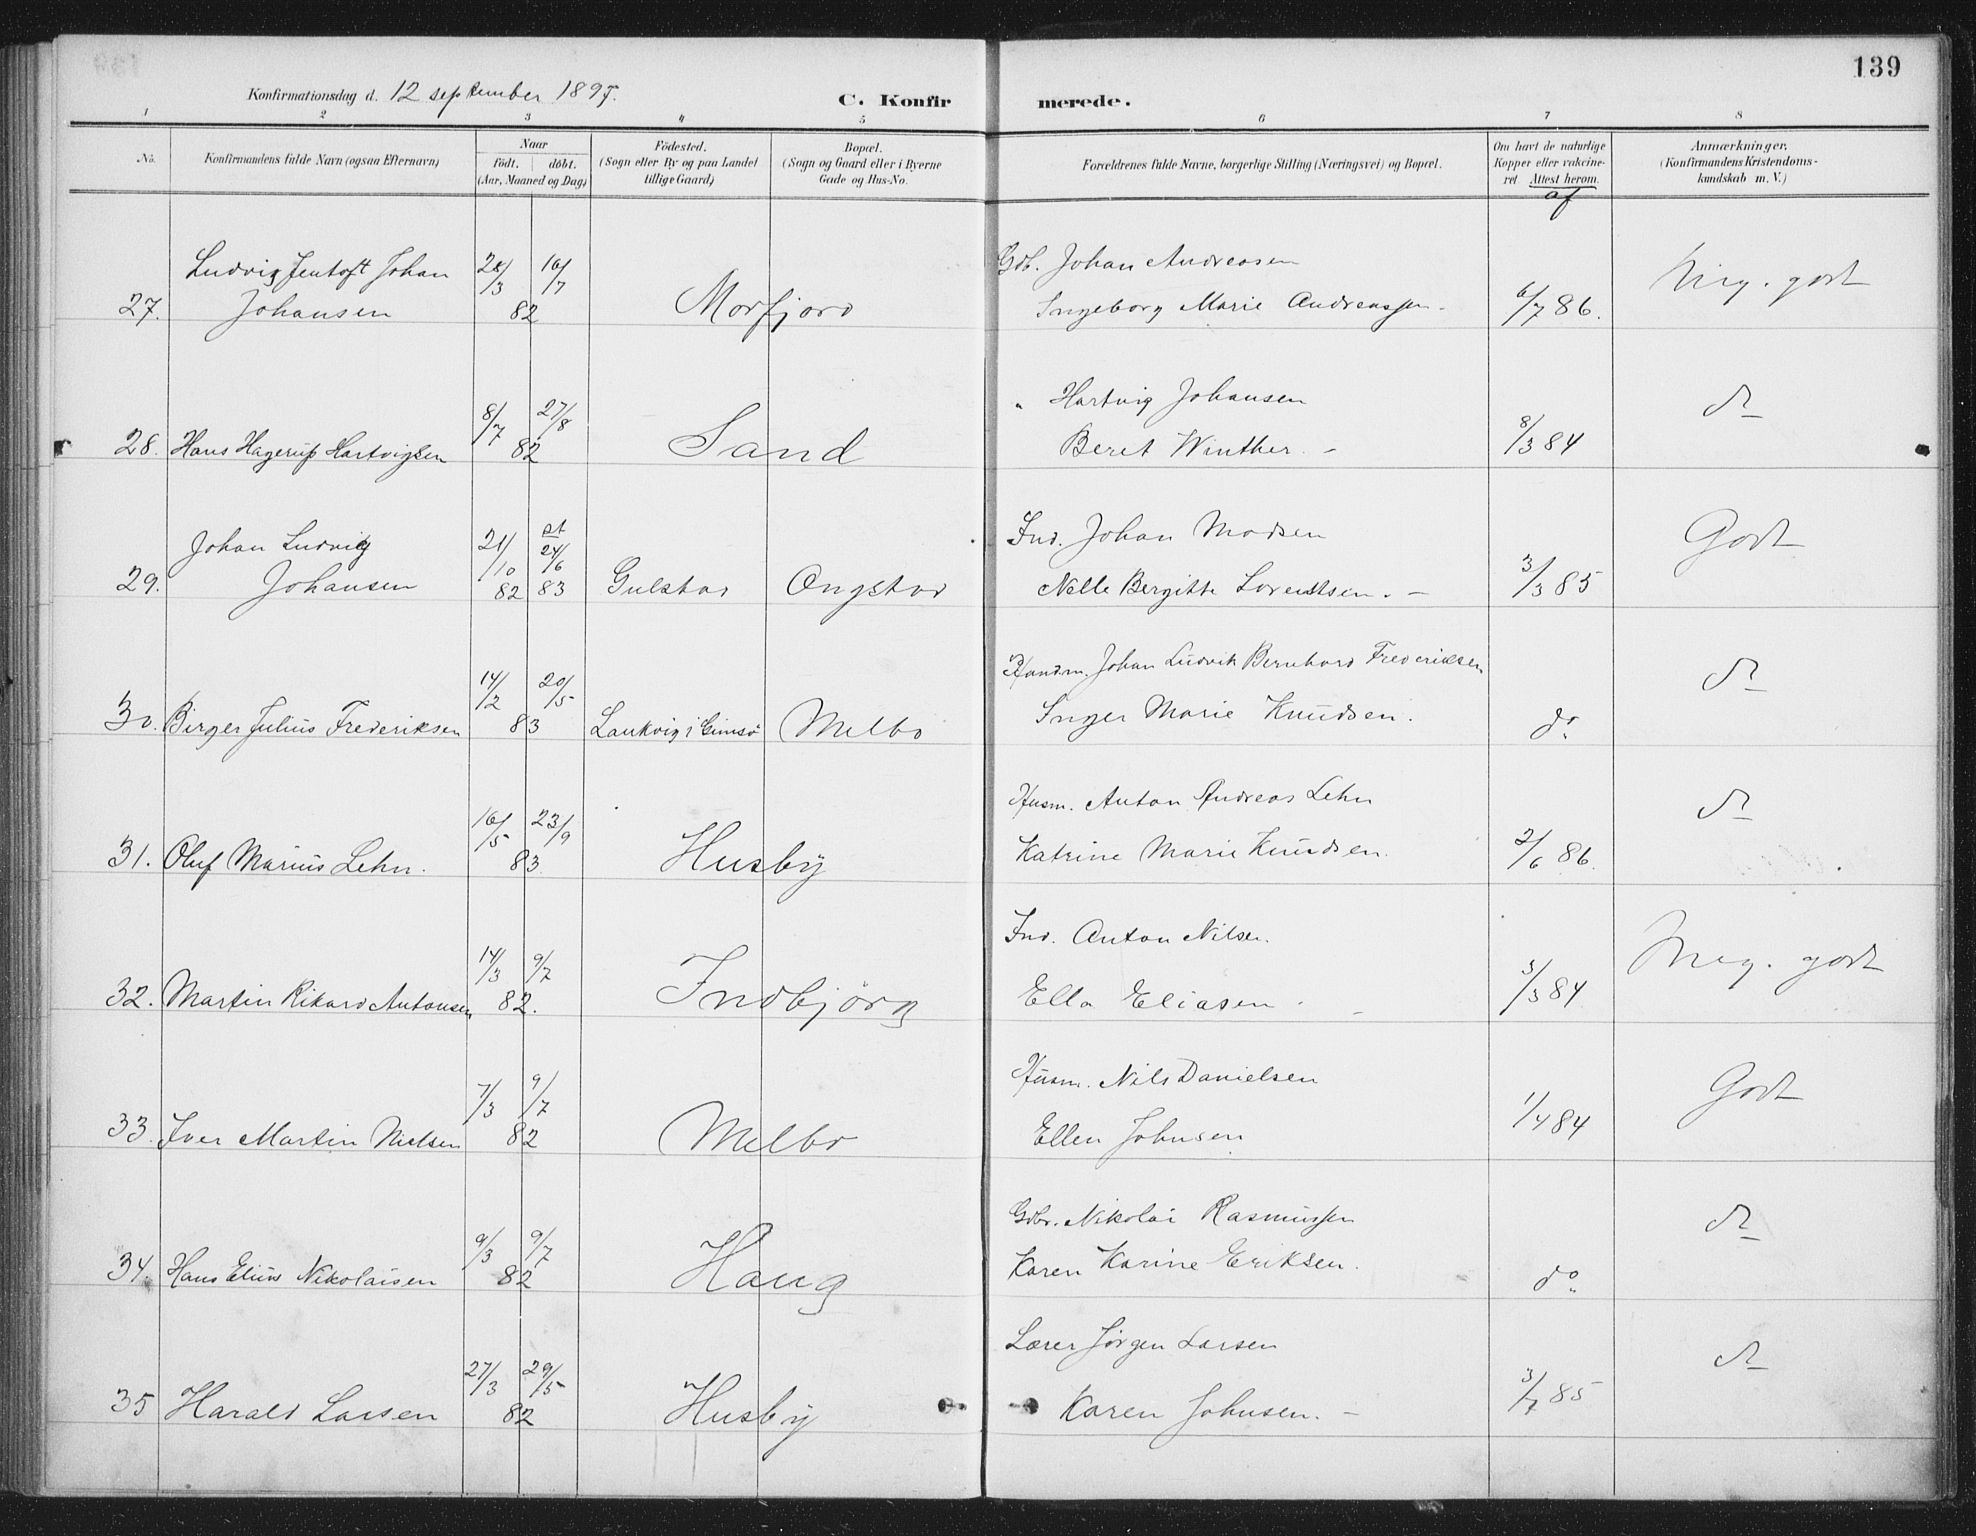 139
Konfirmationsdag d. 12 september 1897.
C. Konfirmerede.
1 2 3 4 5 6 7 8
No.
Konfirmandens fulde Navn (ogsaa Efternavn)
Naar
født. døbt.
(Aar, Maaned og Dag)
Födested.
(Sogn eller By og paa Landet
tillige Gaard)
Bopæl.
(Sogn og Gaard eller i Byerne
Gade og Hus-No.
Forældrenes fulde Navne, borgerlige Stilling (Næringsvei) og Bopæl.
Om havt de naturlige
Kopper eller vakcine-
ret Attest herom.
af
Anmærkninger.
(Konfirmandens Kristendoms-
kundskab m. V.)
Ludvig Jentoft Johan 28/3 16/7 Gdb. Johan Andreasen Meg. godt
27. Johansen 82 Morfjord Ingeborg Marie Andreassen - 6/7 86.
8/7 27/8 " Hartvig Johansen do
28. Hans Hagerup Hartvigsen 82 Sand Beret Winther. - 8/3 84
Johan Ludvig 21/10 24/6 Ind. Johan Madsen Godt
29. Johansen 82 83 Gulstad Ongstad Nelle Bergitte Lorentsen. - 3/3 85
14/2 20/5 Handm. Johan Ludvik Bernhard Frederiksen do
30. Birger Julius Frederiksen 83 Laukvig i Gimsö Melbo Inger Marie Knudsen. do
16/5 23/9 Husm. Anton Andreas Lehn do
31. Oluf Marius Lehn. 83 Husby Katrine Marie Knudsen. 2/6 86.
14/3 9/7 Ind. Anton Nilsen. Meg. godt
32. Martin Rikard Antonsen 82. Indbjörg Ella Eliasen - 3/3 84
7/3 9/7 Husm. Nils Danielsen Godt
33. Iver Martin Nielsen 82 Melbo Ellen Johnsen 1/4 84
9/3 9/7 Gdbr. Nikolai Rasmussen do
34. Hans Elius Nikolaisen 82 Haug Karen Karine Eriksen. do
27/3 29/5 Lærer Jörgen Larsen do
35 Harald Larsen 82 Husby Karen Johnsen. - 3/7 85